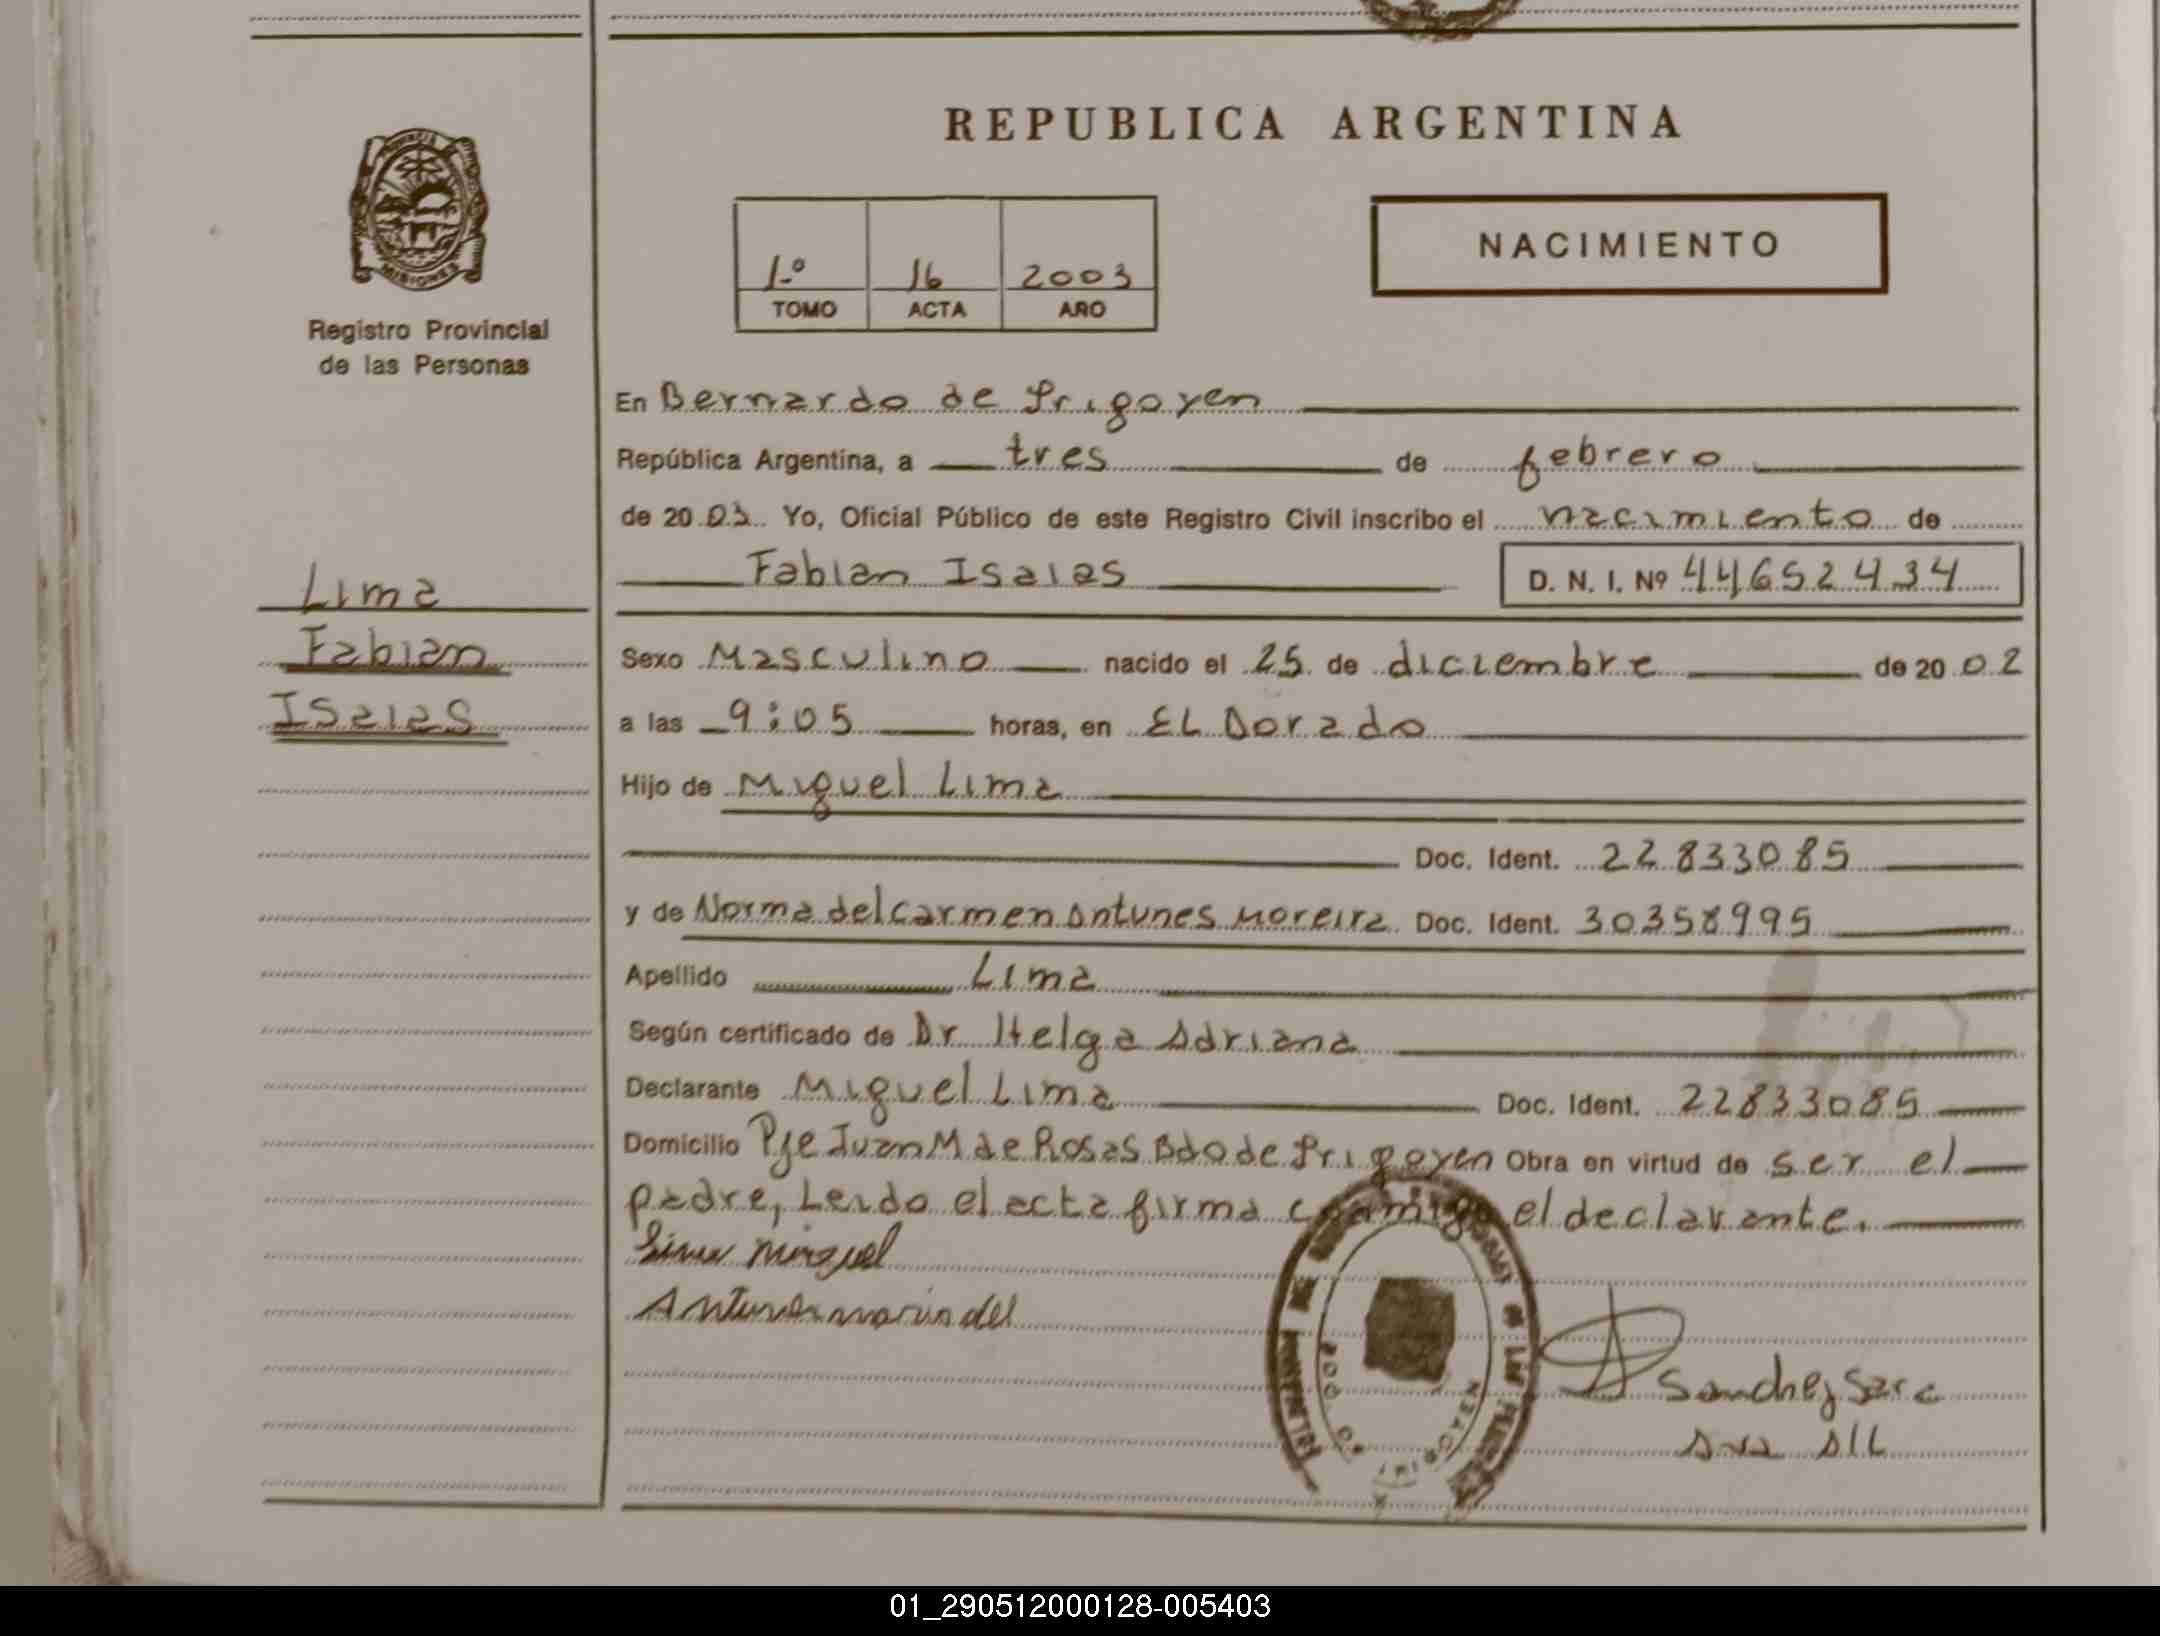 REPUBLICA ARGENTINA
PROVINCIA DE
MISIONES
Registro Provincial
de las Personas
1º 16 2003
TOMO ACTA AÑO
NACIMIENTO
En Bernardo de Irigoyen
República Argentina, a tres de febrero
de 20 03 Yo, Oficial Público de este Registro Civil inscribo el nacimiento de
Fabian Isaias D. N. I. Nº 44652434
Lima
Fabian
Isaias
Sexo Masculino nacido el 25 de diciembre de 20 02
a las 9:05 horas, en EL Dorado
Hijo de Miguel Lima
Doc. Ident. 22833085
y de Norma del Carmen Antunes Moreira Doc. Ident. 30358995
Apellido Lima
Según certificado de Dr Helga Adriana
Declarante Miguel Lima Doc. Ident. 22833085
Domicilio Pje Juan M de Rosas Bdo de Irigoyen Obra en virtud de ser el
padre, Leido el acta firma conmigo el declarante.
Lima Miguel
del
Sanchez Sara
01_290512000128-005403